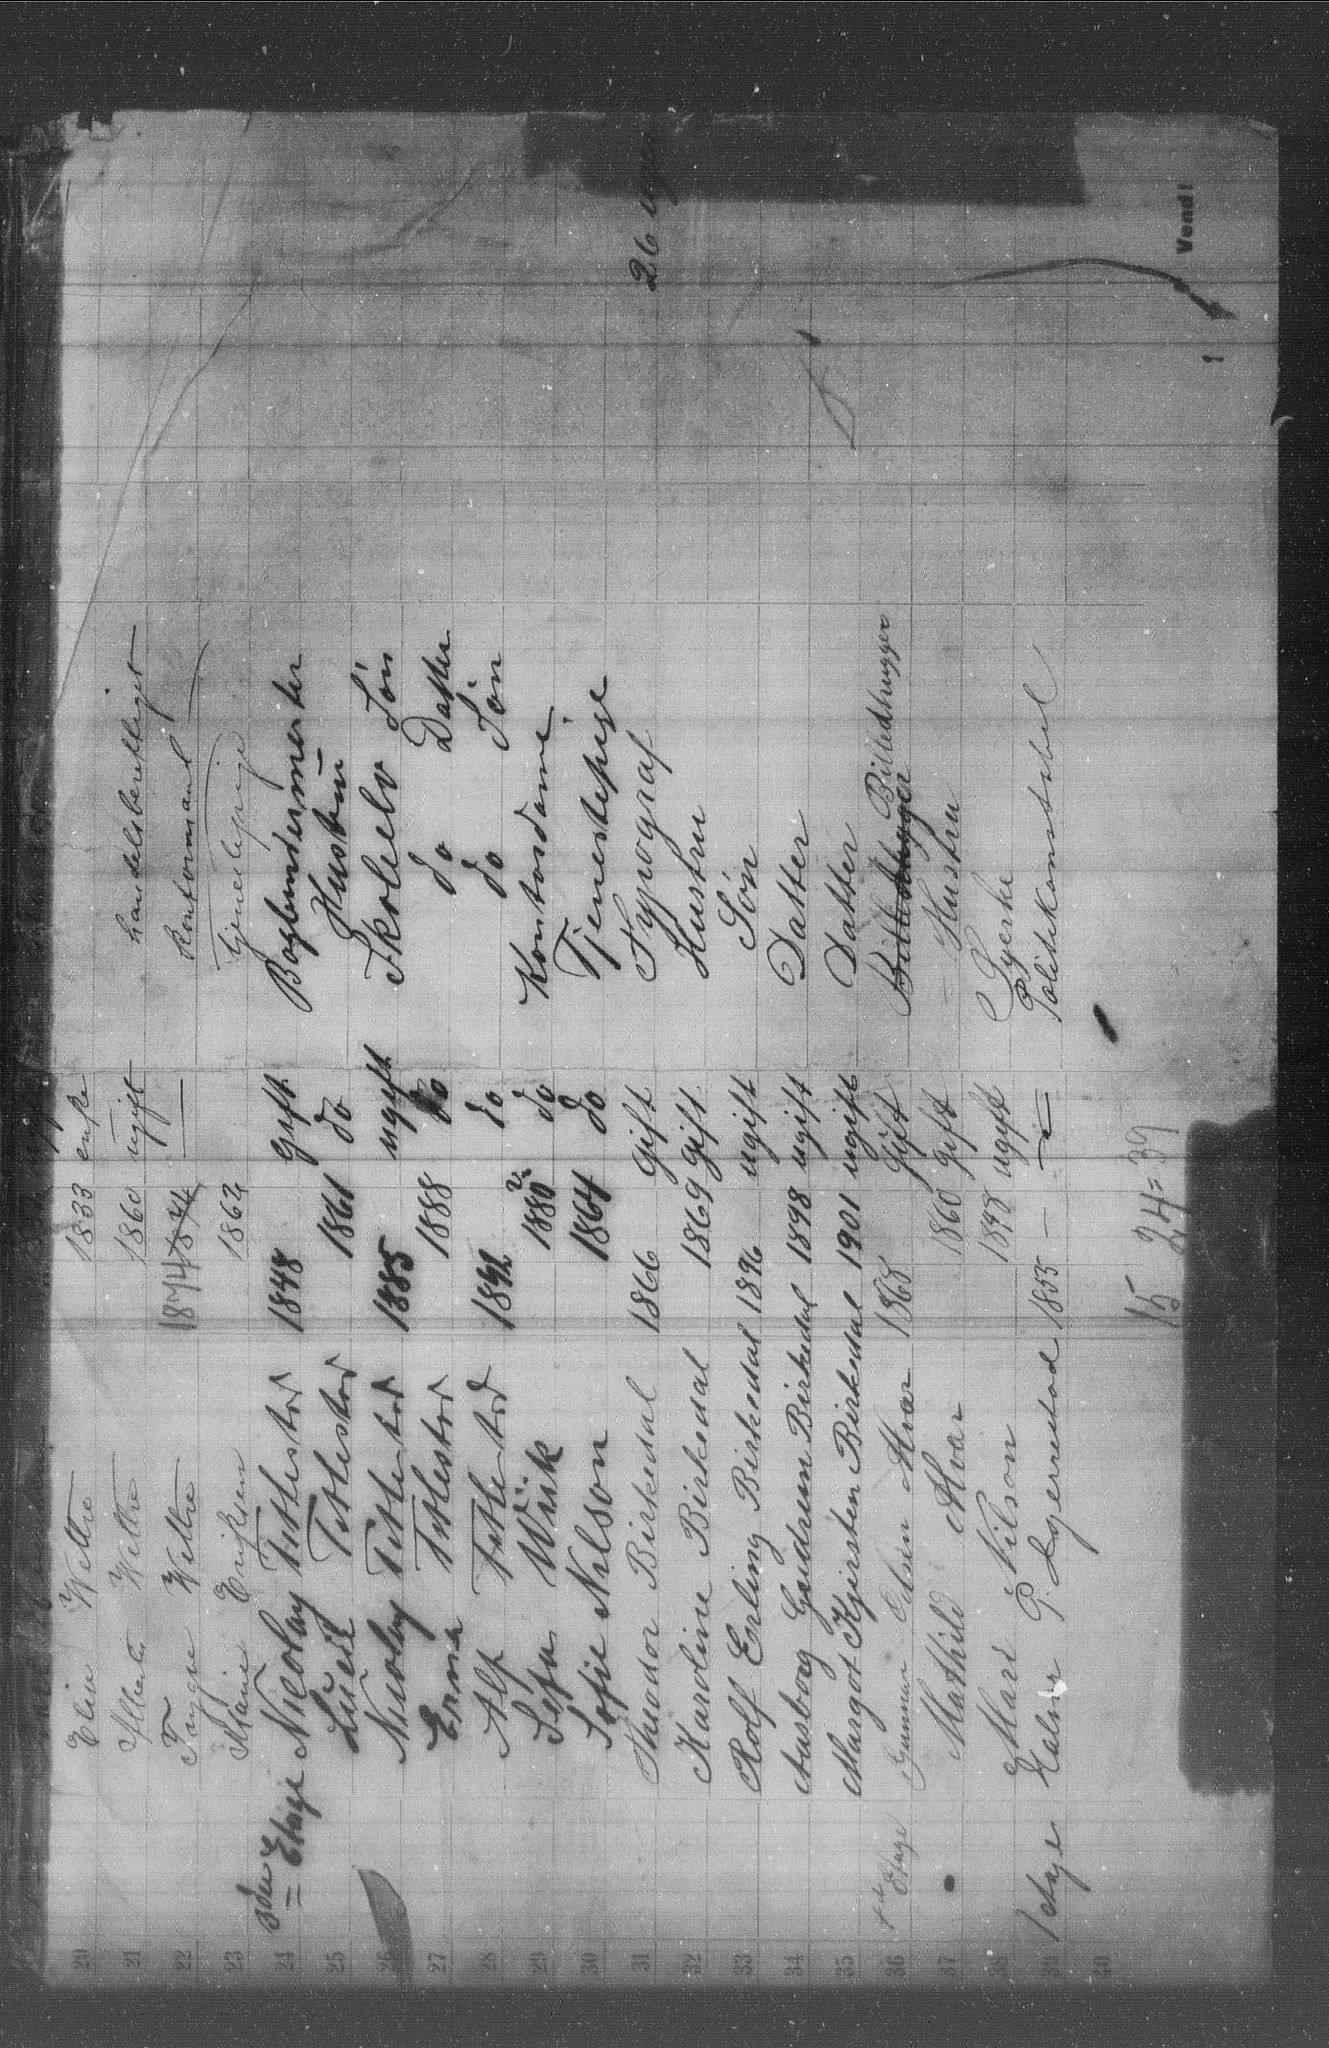 20 Eline Wettre 1833 enke
21 Wettre 1860 ugift handelsberettiget
22 Trygve Wettre 1874 1874 — kontormand —
23 Marie Eriksen 1862 tjenestepige
3die Etage
24 Nicolay Titlestad 1848 gift Bogbindermester
25 Lucie Titlestad 1861 do Hustru
26 Nicolay Titlestad 1885 ugift Skoleelv Søn
27 Erna Titlestad 1888 do do Datter
28 Alf Titlestad 1892 do do Søn
29 Wiik 1880 do Kontordame
30 Sofie Nelson 1864 do Tjenestepige
31 Theodor Birkedal 1866 gift Typograf 26
32 Karoline Birkedal 1869 gift Hustru
33 Rolf Erling Birkedal 1896 ugift Søn
34 Aasborg Gudrun Birkedal 1898 ugift Datter
35 Margot Kjersten Birkedal 1901 ugift Datter
36 4de Etage Gunnar Olsen Hvar 1868 gift Billedhugger Billedhugger
37 Mathild Hvar 1860 gift = Hustru
38 Mari Nilson 1878 ugift
39 1 etage P. 1855 — Politikonstabel
40
15 24 = 39
Vend!